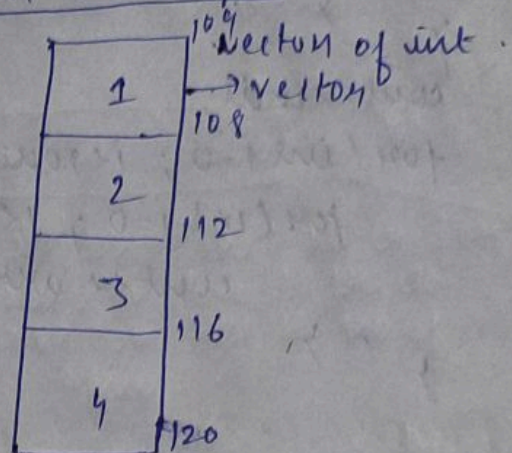 104 vector of int.
1 → vector
108
2
112
3
116
4
120